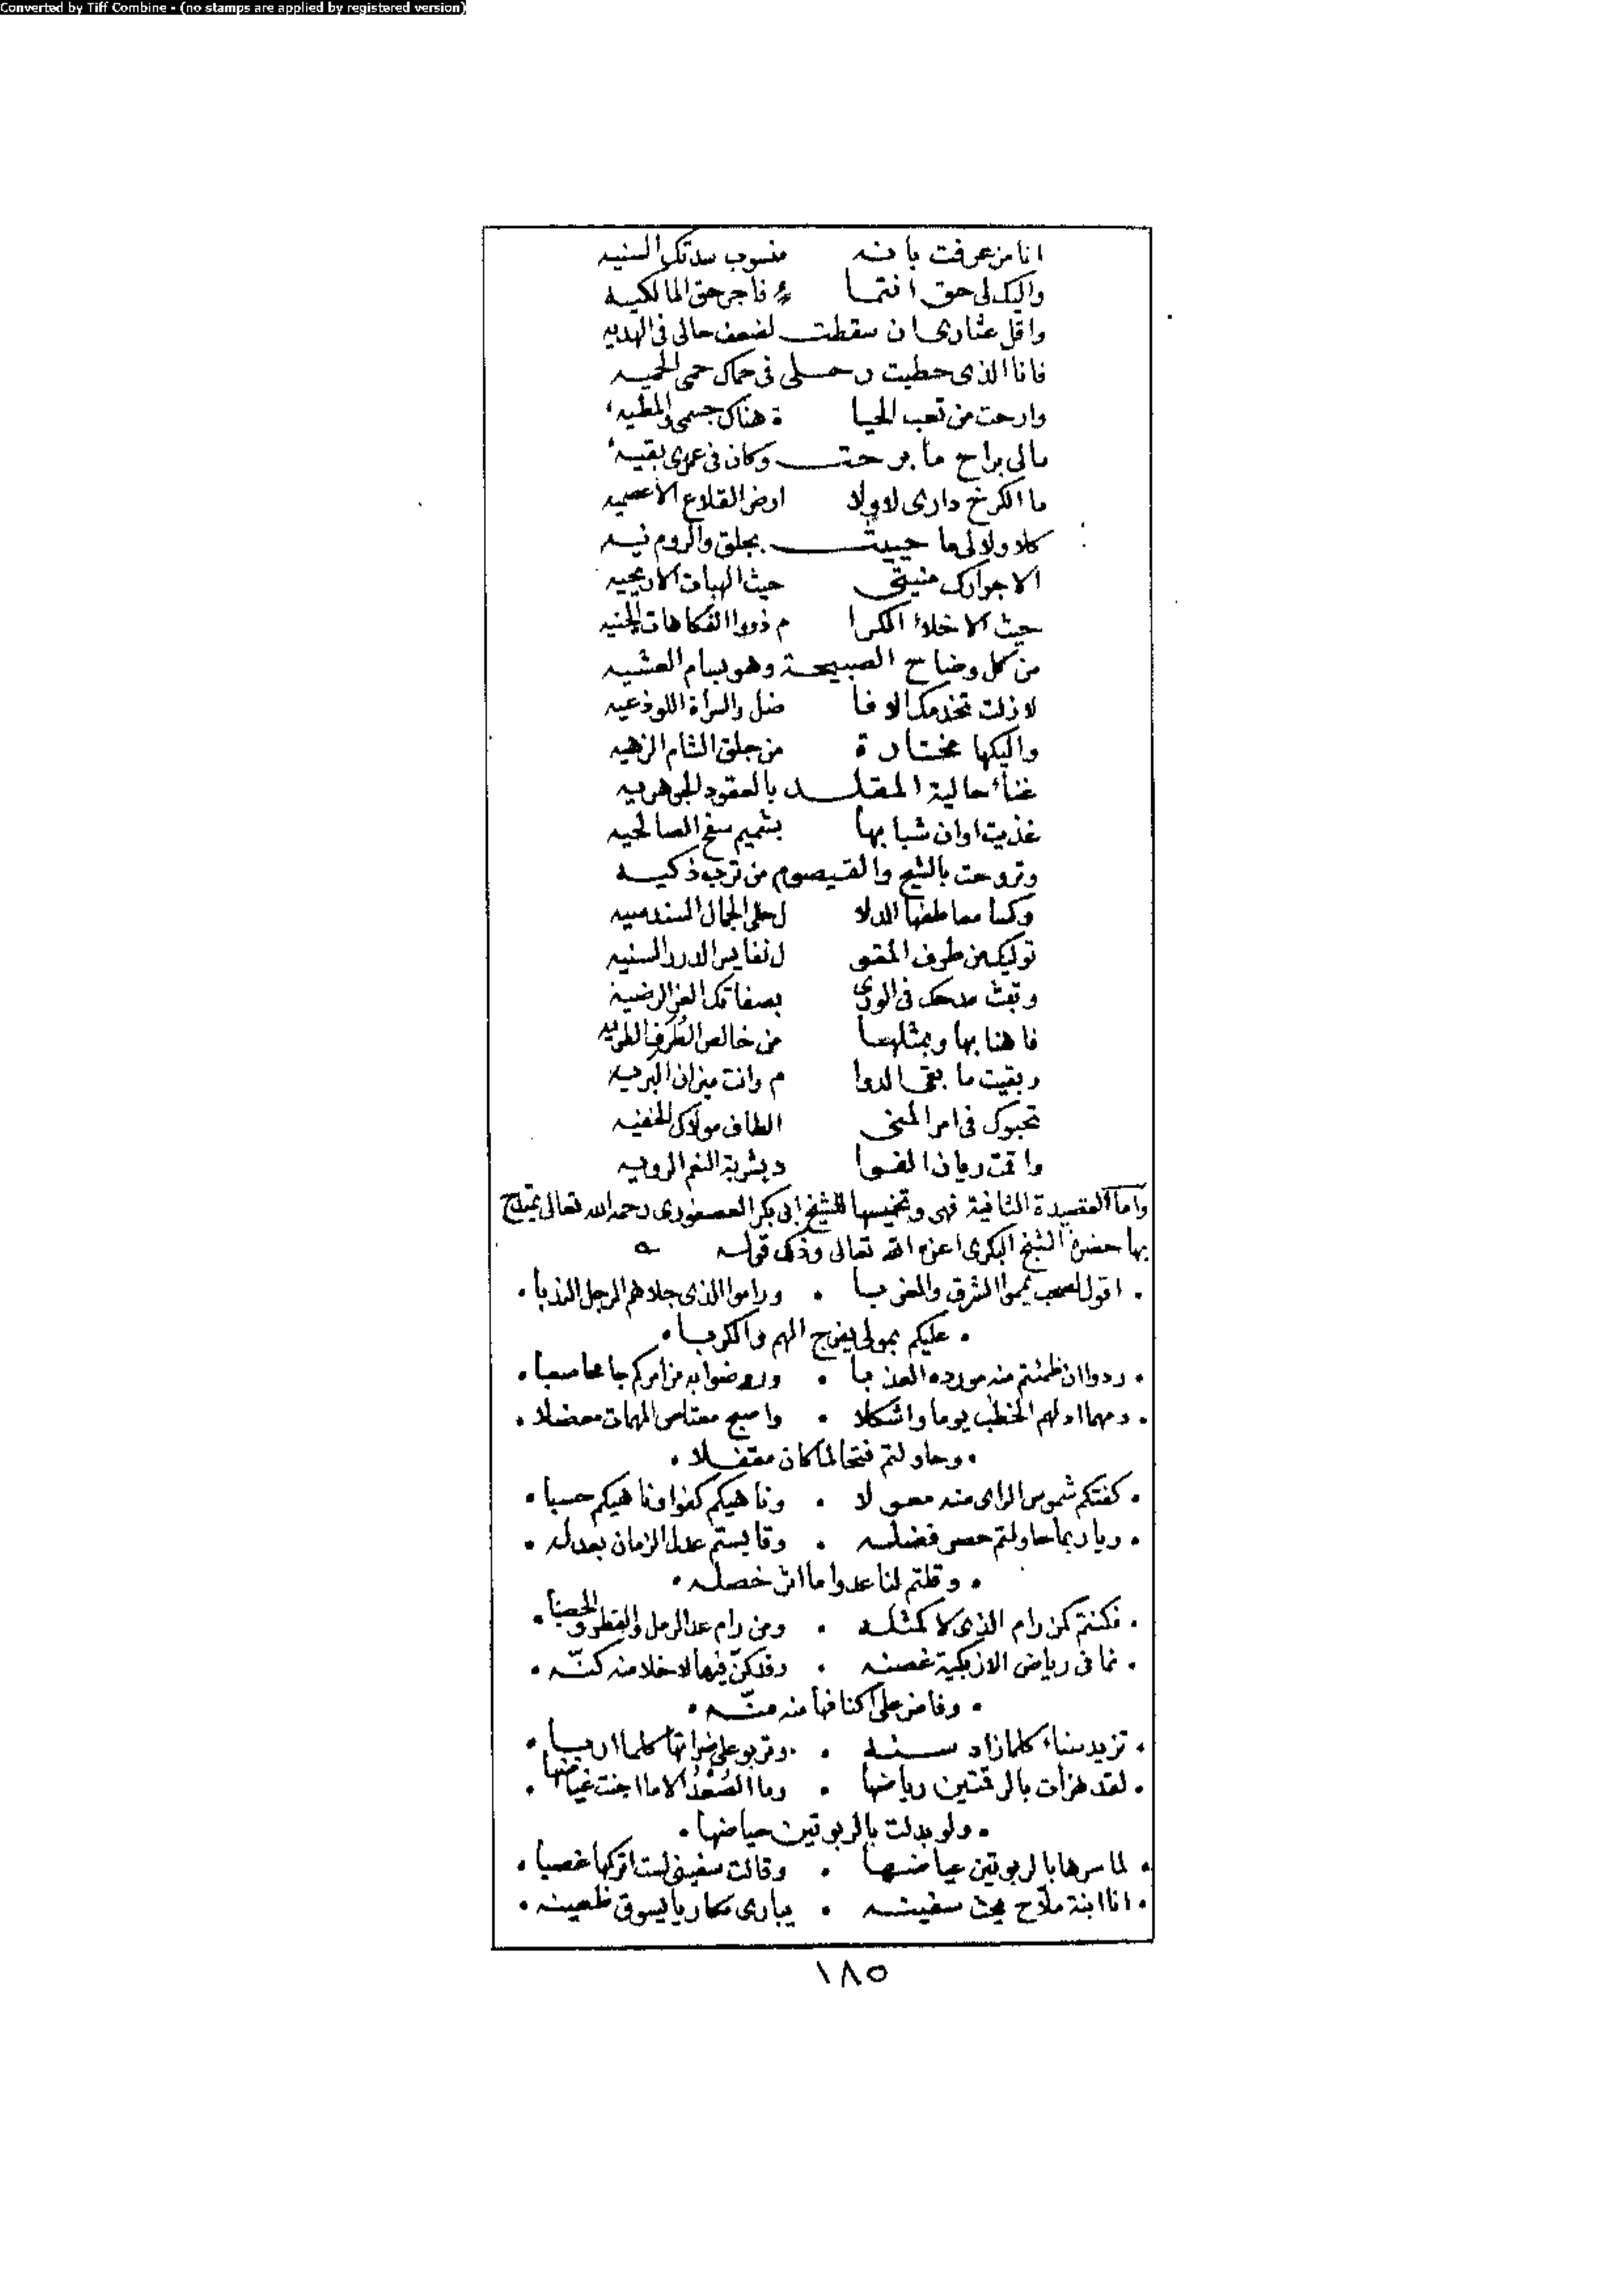 Converted by Tiff Combine - (no stamps are applied by registered version)
انا من عرفت بانه منسوب سدتك السنيه
واليك لى حق انتما ء فاجر حق المالكيه
واقل عثارى ان سقطت لضعف حالى فى الهديه
فانا الذى حطيت رحلى فى حماك حمى الحميه
وارحت من تعب الحيا ة هناك جسمى والمطيه
مالى براح ما برحت وكان فى عمرى بقيه
ما الكرخ دارى لا ولا ارض القلاع الاعصميه
كلا ولا لى ما حييت بجلق والروم نيه
الا جوارك منيتى حيث الهبات الاريحيه
حيث الاخلاء الكرا م ذووا الفكاهات الجنيه
من كل وضاح الصبيحة وهو بسام العشيه
لا زلت تخدمك الافا ضل والسراة اللوذعيه
واليكها مختارة من جلق الشام الزهيه
غناء حالية المقلد بالعقود الجوهريه
غذيت اوان شبابها بشميم سفح الصالحيه
وتروحت بالشيح والقيصوم من ترب ذكيه
وكسا معاطفها الدلا ل حلى الجمال السندسيه
توليك من طرف المقو ل نفايس الدرر السنيه
وتبث مدحك فى الورى بصفاتك الغر الرضية
فاهنا بها وبمثلها من خالص الطرف الطريه
وبقيت ما بقى الدوا م وانت ميزان البريه
تحبوك فى امر المنى الطاف مولاك الخفيه
واقت ريان الفوا د بشربة النغم الرويه
واما القصيدة الثانية فهى وتخميسها للشيخ ابى بكر العصفورى رحمه الله تعالى يمتدح
بها حضرة الشيخ البكرى اعزه الله تعالى وذلك قوله
اقول لصحب يمموا الشرق والغربا . وراموا الذى جلاهم الرجل الندبا .
. عليكم بمولى يفرج الهم والكربا .
. ردوا ان ظمئتم منه مورده العذبا . وروضوا به من امركم جامحا صعبا .
. ومهما ادلهم الخطب يوما واشكلا . واصبح معتاص المهمات معضلا .
. وحاولتم فتحا لما كان مقفلا .
. كفتكم شموس الراى منه معولا . وناهيكم كفوا وناهيكم حسبا .
. ويا ربما حاولتم حصر فضله . وقايستم عدل الزمان بعدله .
. وقلتم لنا عدوا ما اثر خصله .
. فكنتم كمن رام الذى لا كمثله . ومن رام عد الرمل والقطر والحصبا .
. نما فى رياض الازبكية غصنه . وقد كن فيها لا خلا منه كنه .
. وفاض على اكنافها منه منه .
. تزيد سناء كلما زاد سنه . وتربو على ضراتها كلما اربى .
. لقد هزأت بالرقتين رياضها . وما السعد الا ما اجنت غياضها .
. ولو بدلت بالربوتين حياضها .
. لما سرها بالربوتين عياضها . وقالت سفينى لست اتركها غصبا .
. انا ابنة ملاح يحث سفينه . يبارى مكاريا يسوق ظعينه .
١٨٥